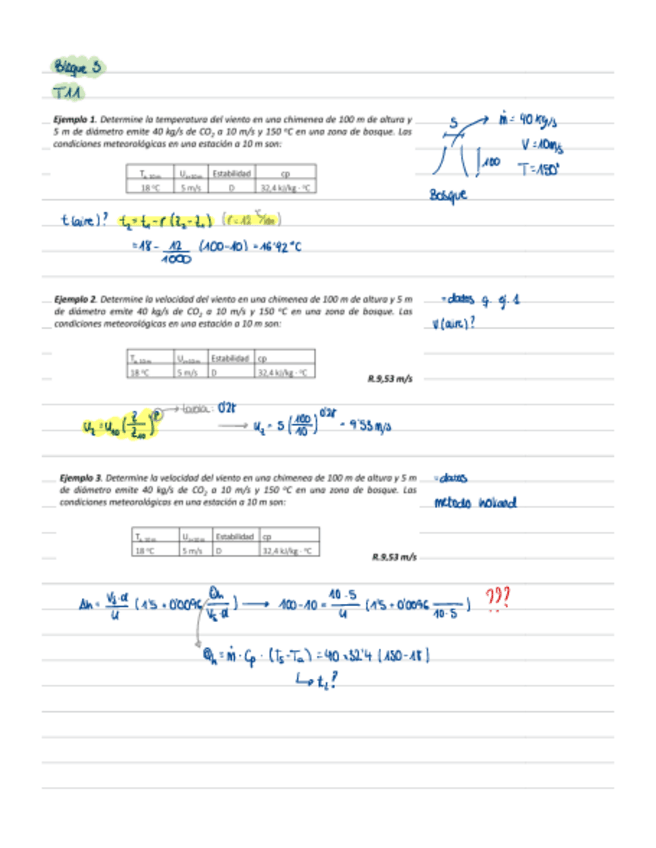 Bloque 3
T11
Ejemplo 1. Determine la temperatura del viento en una chimenea de 100 m de altura y
5 m de diámetro emite 40 kg/s de CO₂ a 10 m/s y 150 ºC en una zona de bosque. Las
condiciones meteorológicas en una estación a 10 m son:
5 → ṁ = 40 kg/s
V = 10 m/s
100 T = 150º
Bosque
Estabilidad cp
18 ºC 5 m/s D 32,4 kJ/kg · ºC
t(aire)? t₂ = t₁ - Γ (z₂ - z₁)
= 18 - 12/1000 (100-10) = 16'92 ºC
Ejemplo 2. Determine la velocidad del viento en una chimenea de 100 m de altura y 5 m
de diámetro emite 40 kg/s de CO₂ a 10 m/s y 150 ºC en una zona de bosque. Las
condiciones meteorológicas en una estación a 10 m son:
= datos q. ej. 1
v(aire)?
Estabilidad cp
18 ºC 5 m/s D 32,4 kJ/kg · ºC
R.9,53 m/s
tabla: 0'28
u_z = u₁₀ (z/z₁₀)^p → u_z = 5 (100/10)^0'28 = 9'53 m/s
Ejemplo 3. Determine la velocidad del viento en una chimenea de 100 m de altura y 5 m
de diámetro emite 40 kg/s de CO₂ a 10 m/s y 150 ºC en una zona de bosque. Las
condiciones meteorológicas en una estación a 10 m son:
= datos
metodo
Estabilidad cp
18 ºC 5 m/s D 32,4 kJ/kg · ºC
R.9,53 m/s
Δh = Vs·d/u (1'5 + 0'0096 Qh/Vs·d) → 100-10 = 10·5/u (1'5 + 0'0096 /10·5) ???
Qh = ṁ · Cp · (Ts - Ta) = 40 × 32'4 (150-18)
↳ t₂?